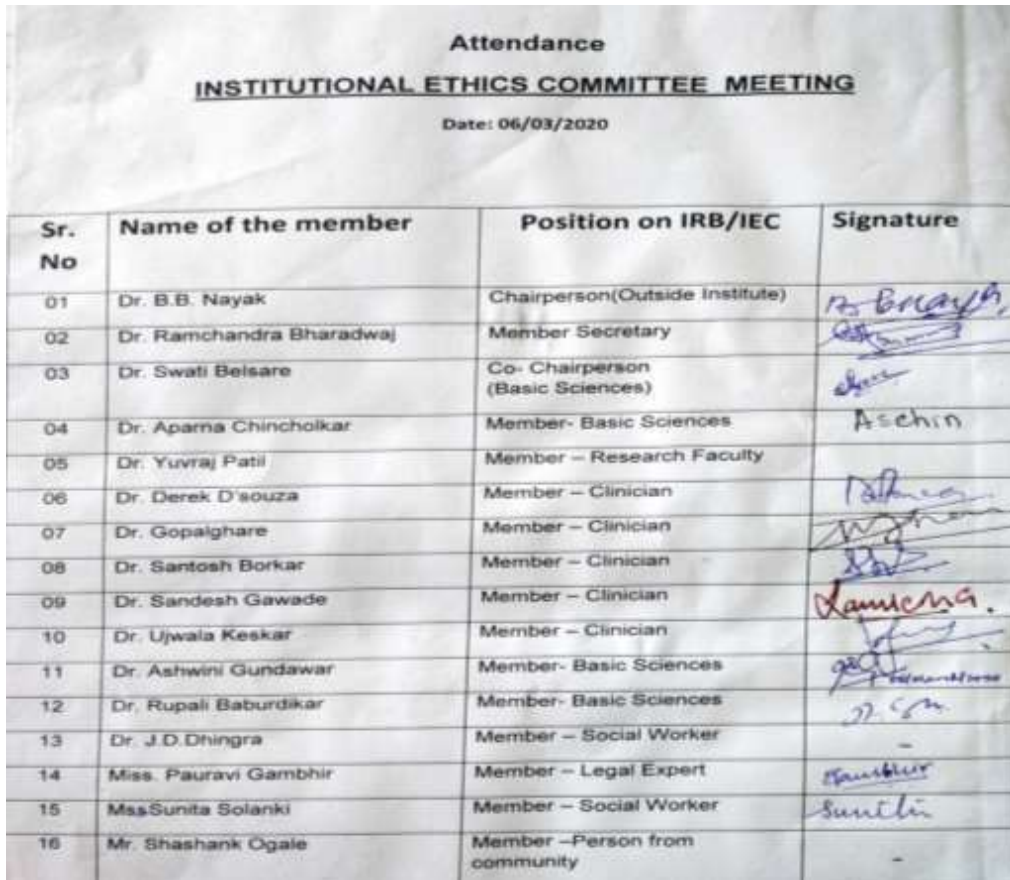 Attendance
INSTITUTIONAL ETHICS COMMITTEE MEETING
Date: 06/03/2020
Sr. No Name of the member Position on IRB/IEC Signature
01 Dr. B.B. Nayak Chairperson(Outside Institute)
02 Dr. Ramchandra Bharadwaj Member Secretary
03 Dr. Swati Belsare Co- Chairperson (Basic Sciences)
04 Dr. Aparna Chincholkar Member- Basic Sciences Aschin
05 Dr. Yuvraj Patil Member – Research Faculty
06 Dr. Derek D'souza Member – Clinician
07 Dr. Gopalghare Member – Clinician
08 Dr. Santosh Borkar Member – Clinician
09 Dr. Sandesh Gawade Member – Clinician
10 Dr. Ujwala Keskar Member – Clinician
11 Dr. Ashwini Gundawar Member- Basic Sciences
12 Dr. Rupali Baburdikar Member- Basic Sciences
13 Dr. J.D.Dhingra Member – Social Worker -
14 Miss. Pauravi Gambhir Member – Legal Expert
15 MssSunita Solanki Member – Social Worker
16 Mr. Shashank Ogale Member –Person from community -